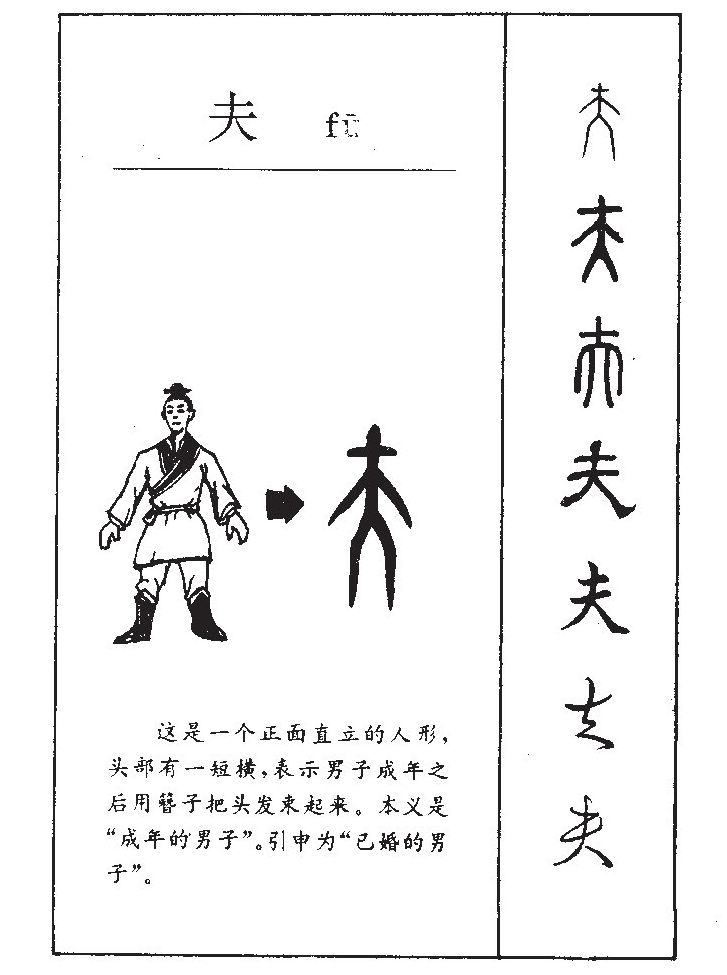 夫 fū
这是一个正面直立的人形，
头部有一短横，表示男子成年之
后用簪子把头发束起来。本义是
“成年的男子”。引申为“已婚的男
子”。
夫
夫
夫
夫
夫
夫
夫